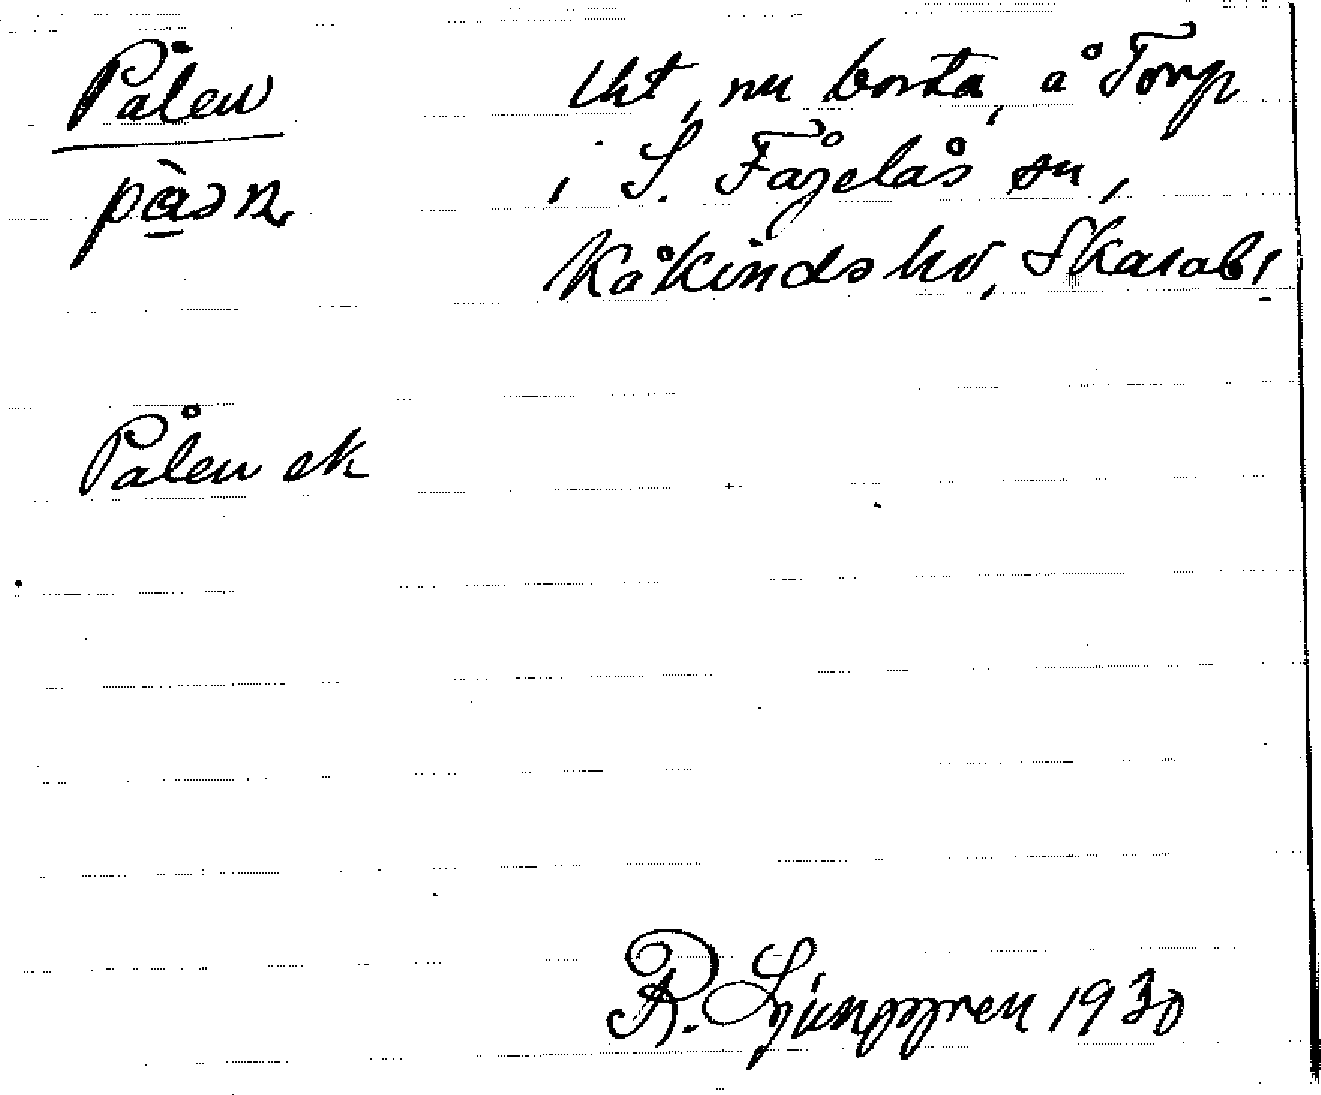 Pålen
lht, nu borta, å Torp
i S. Fågelås sn,
Kåkinds hd, Skarab.
Pålen ek
R. Ljunggren 1930